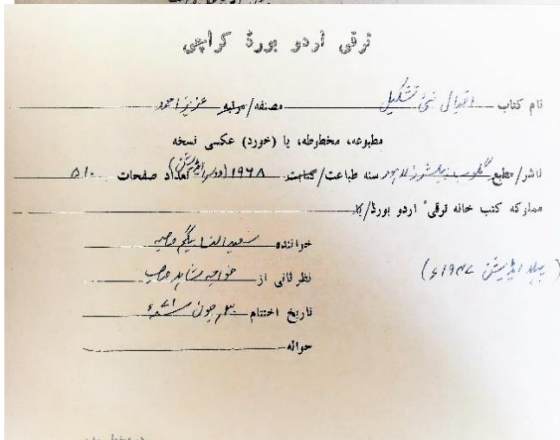 ترقی اردو بورڈ کراچی
نام کتاب اقبال نئی تشکیل مصنفہ/مرتبہ عزیز احمد
مطبوعہ، مخطوطہ، یا (خورد) عکسی نسخہ
ناشر/مطبع گلوب پبلشرز لاہور سنہ طباعت/کتابت ۱۹۶۸ (دوسرا ایڈیشن) تعداد صفحات ۵۱۰
مملوکہ کتب خانہ ترقی اردو بورڈ/
خوانندہ سعید النسا بیگم صاحبہ
(پہلا ایڈیشن ۱۹۴۷ء)
نظر ثانی از خواجہ شاہد صاحب
تاریخ اختتام ۳۰ جون ۷۱ء
حوالہ